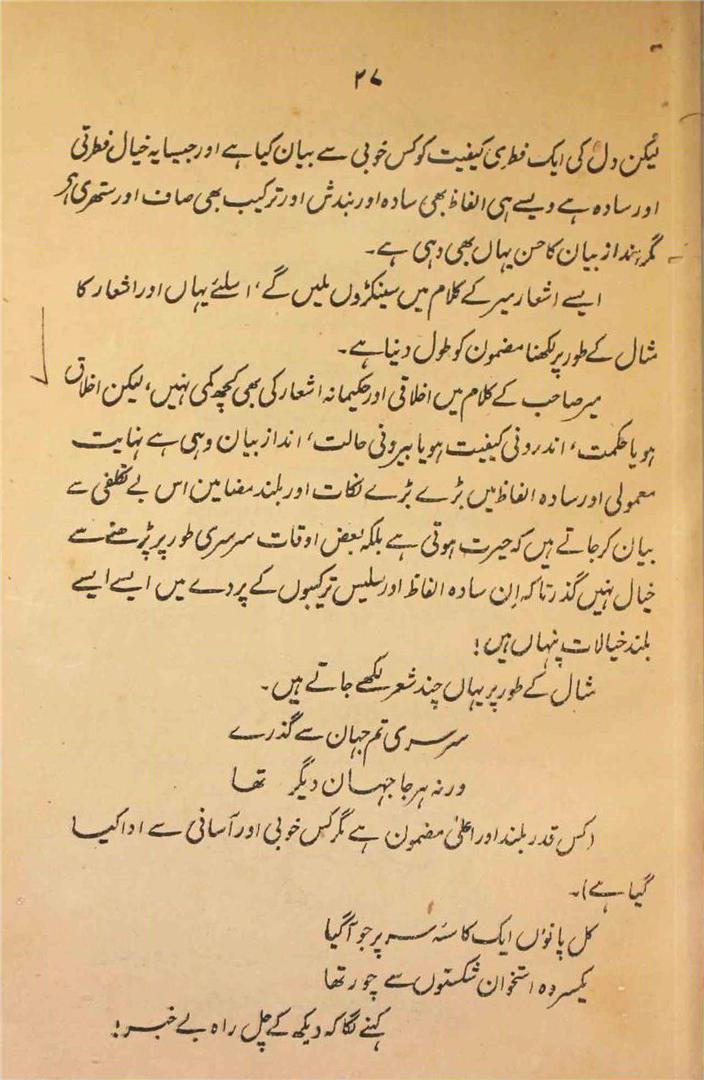 ۲۷
لیکن دل کی ایک فطری کیفیت کو کس خوبی سے بیان کیا ہے اور جیسا یہ خیال فطرتی
اور سادہ ہے ویسے ہی الفاظ بھی سادہ اور بندش اور ترکیب بھی صاف اور ستھری ہے
مگر انداز بیان کا حسن یہاں بھی وہی ہے۔
ایسے اشعار میر کے کلام میں سینکڑوں ملیں گے، اسلئے یہاں اور اشعار کا
مثال کے طور پر لکھنا مضمون کو طول دینا ہے۔
میر صاحب کے کلام میں اخلاقی اور حکیمانہ اشعار کی بھی کچھ کمی نہیں، لیکن اخلاق
ہو یا حکمت، اندرونی کیفیت ہو یا بیرونی حالت، انداز بیان وہی ہے نہایت
معمولی اور سادہ الفاظ میں بڑے بڑے نکات اور بلند مضامین اس بے تکلفی سے
بیان کر جاتے ہیں کہ حیرت ہوتی ہے بلکہ بعض اوقات سرسری طور پر پڑھنے سے
خیال نہیں گذرتا کہ اِن سادہ الفاظ اور سلیس ترکیبوں کے پردے میں ایسے ایسے
بلند خیالات پنہاں ہیں!
مثال کے طور پر یہاں چند شعر لکھے جاتے ہیں۔
سرسری تم جہان سے گذرے
ورنہ ہر جا جہان دیگر تھا
(کس قدر بلند اور اعلیٰ مضمون ہے مگر کس خوبی اور آسانی سے ادا کیا
گیا ہے)۔
کل پانوں ایک کاسۂ سر پر جو آگیا
یکسر وہ استخوان شکستوں سے چور تھا
کہنے لگا کہ دیکھ کے چل راہ بے خبر!